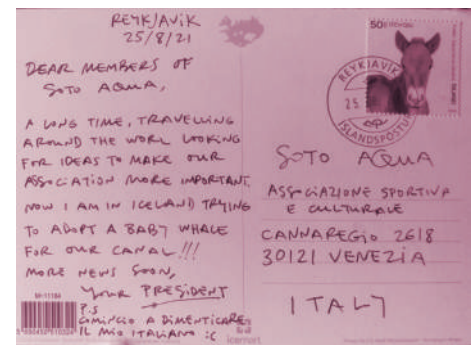 REYKJAVIK
25/8/21
DEAR MEMBERS OF
SOTO AQUA,
A LONG TIME, TRAVELLING
AROUND THE WORL LOOKING
FOR IDEAS TO MAKE OUR
ASSOCIATION MORE IMPORTANT.
NOW I AM IN ICELAND TRYING
TO ADOPT A BABY WHALE
FOR OUR CANAL!!!
MORE NEWS SOON,
YOUR PRESIDENT
P.S
COMINCIO A DIMENTICARE
IL MIO ITALIANO :C
MI-11184
icemart
50g
REYKJAVÍK
25
ÍSLANDSPÓSTUR
SOTO AQUA
ASSOCIAZIONE SPORTIVA
E CULTURALE
CANNAREGIO 2618
30121 VENEZIA
ITALY